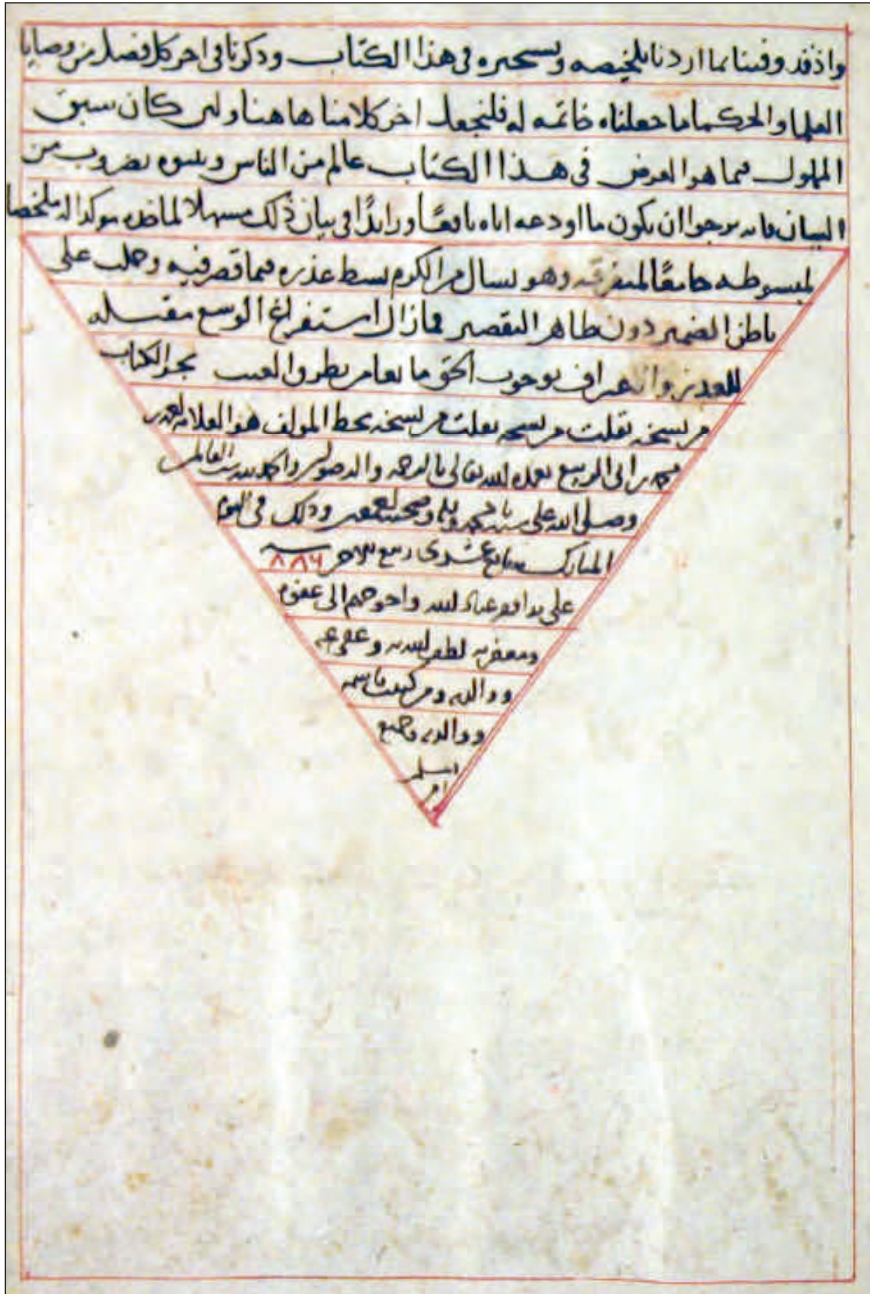 واذ قد وفينا بما اردنا تلخيصه و في هذا الكتاب وذكرنا في اخر كل فصل من وصايا
العلما والحكما ما جعلناه خاتمه له فلنجعل اخر كلامنا هاهنا ولين كان سبق
المملوك فيما هو الغرض في هذا الكتاب عالم من الناس بضروب من
البيان فانه يرجوا ان يكون ما اودعه اياه نافعًا و زايدًا في بيان ذلك مسهلا لما ملخصا
لمبسوطه جامعًا لمتفرقه وهو يسال من الكرم بسط عذره فيما قصر فيه على
باطن الضمير دون ظاهر التقصير فما زال استفراغ الوسع
بوجوب الحق ما نعا من تطرق العيب نجز الكتاب
من نسخه نقلت من نسخه نقلت من نسخه بخط المولف هو العلامه
بن ابي الربيع تغمده الله تعالى بالرحمه والرضوان والحمد لله رب العالمين
وصلى الله على سيدنا محمد واله وصحبه وذلك في اليوم
المبارك ربيع الاخر سنه ٨٨٦
على يد افقر عباد الله واحوجهم الى عفوه
ومغفرته لطف الله به وعفى عنه
ووالديه ومن كتبت باسمه
ووالديه وجميع